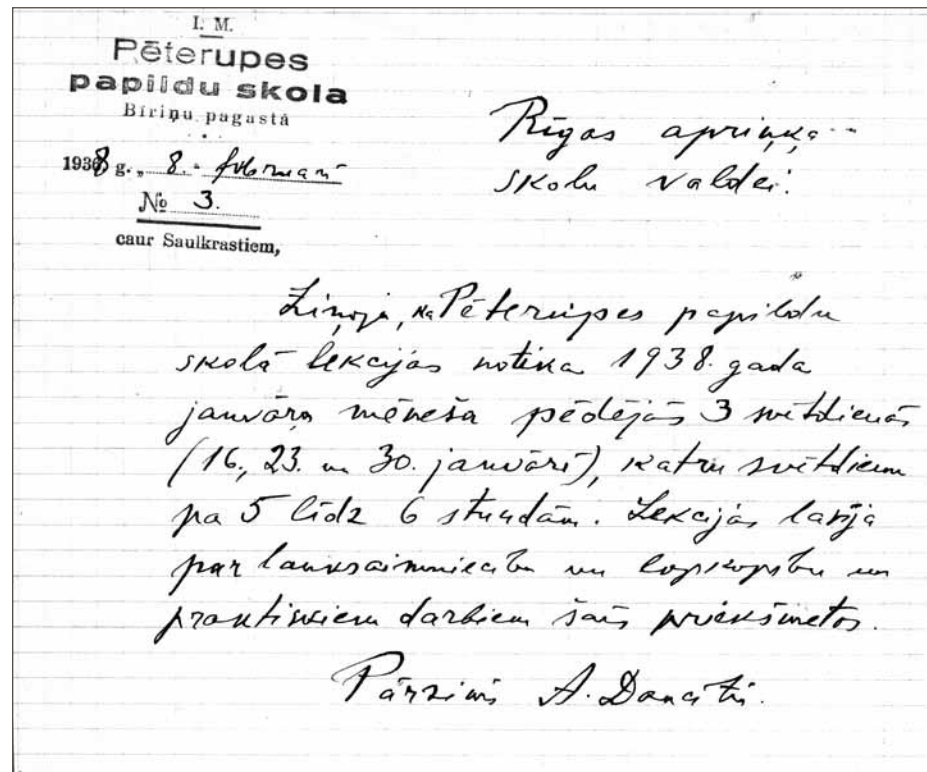 I. M.
Pēterupes
papildu skola
Bīriņu pagastā
1938 g. „ 8. " februarī
№ 3.
caur Saulkrastiem,
Rīgas apriņķa
skolu valdei.
Ziņoju, ka Pēterupes papildu
skolā lekcijas notika 1938. gada
janvāra mēneša pēdējās 3 svētdienās
(16., 23. un 30. janvārī), katru svētdienu
pa 5 līdz 6 stundām. Lekcijas lasīja
par lauksaimniecību un lopkopību un
praktiskiem darbiem šais priekšmetos.
Pārzinis A.